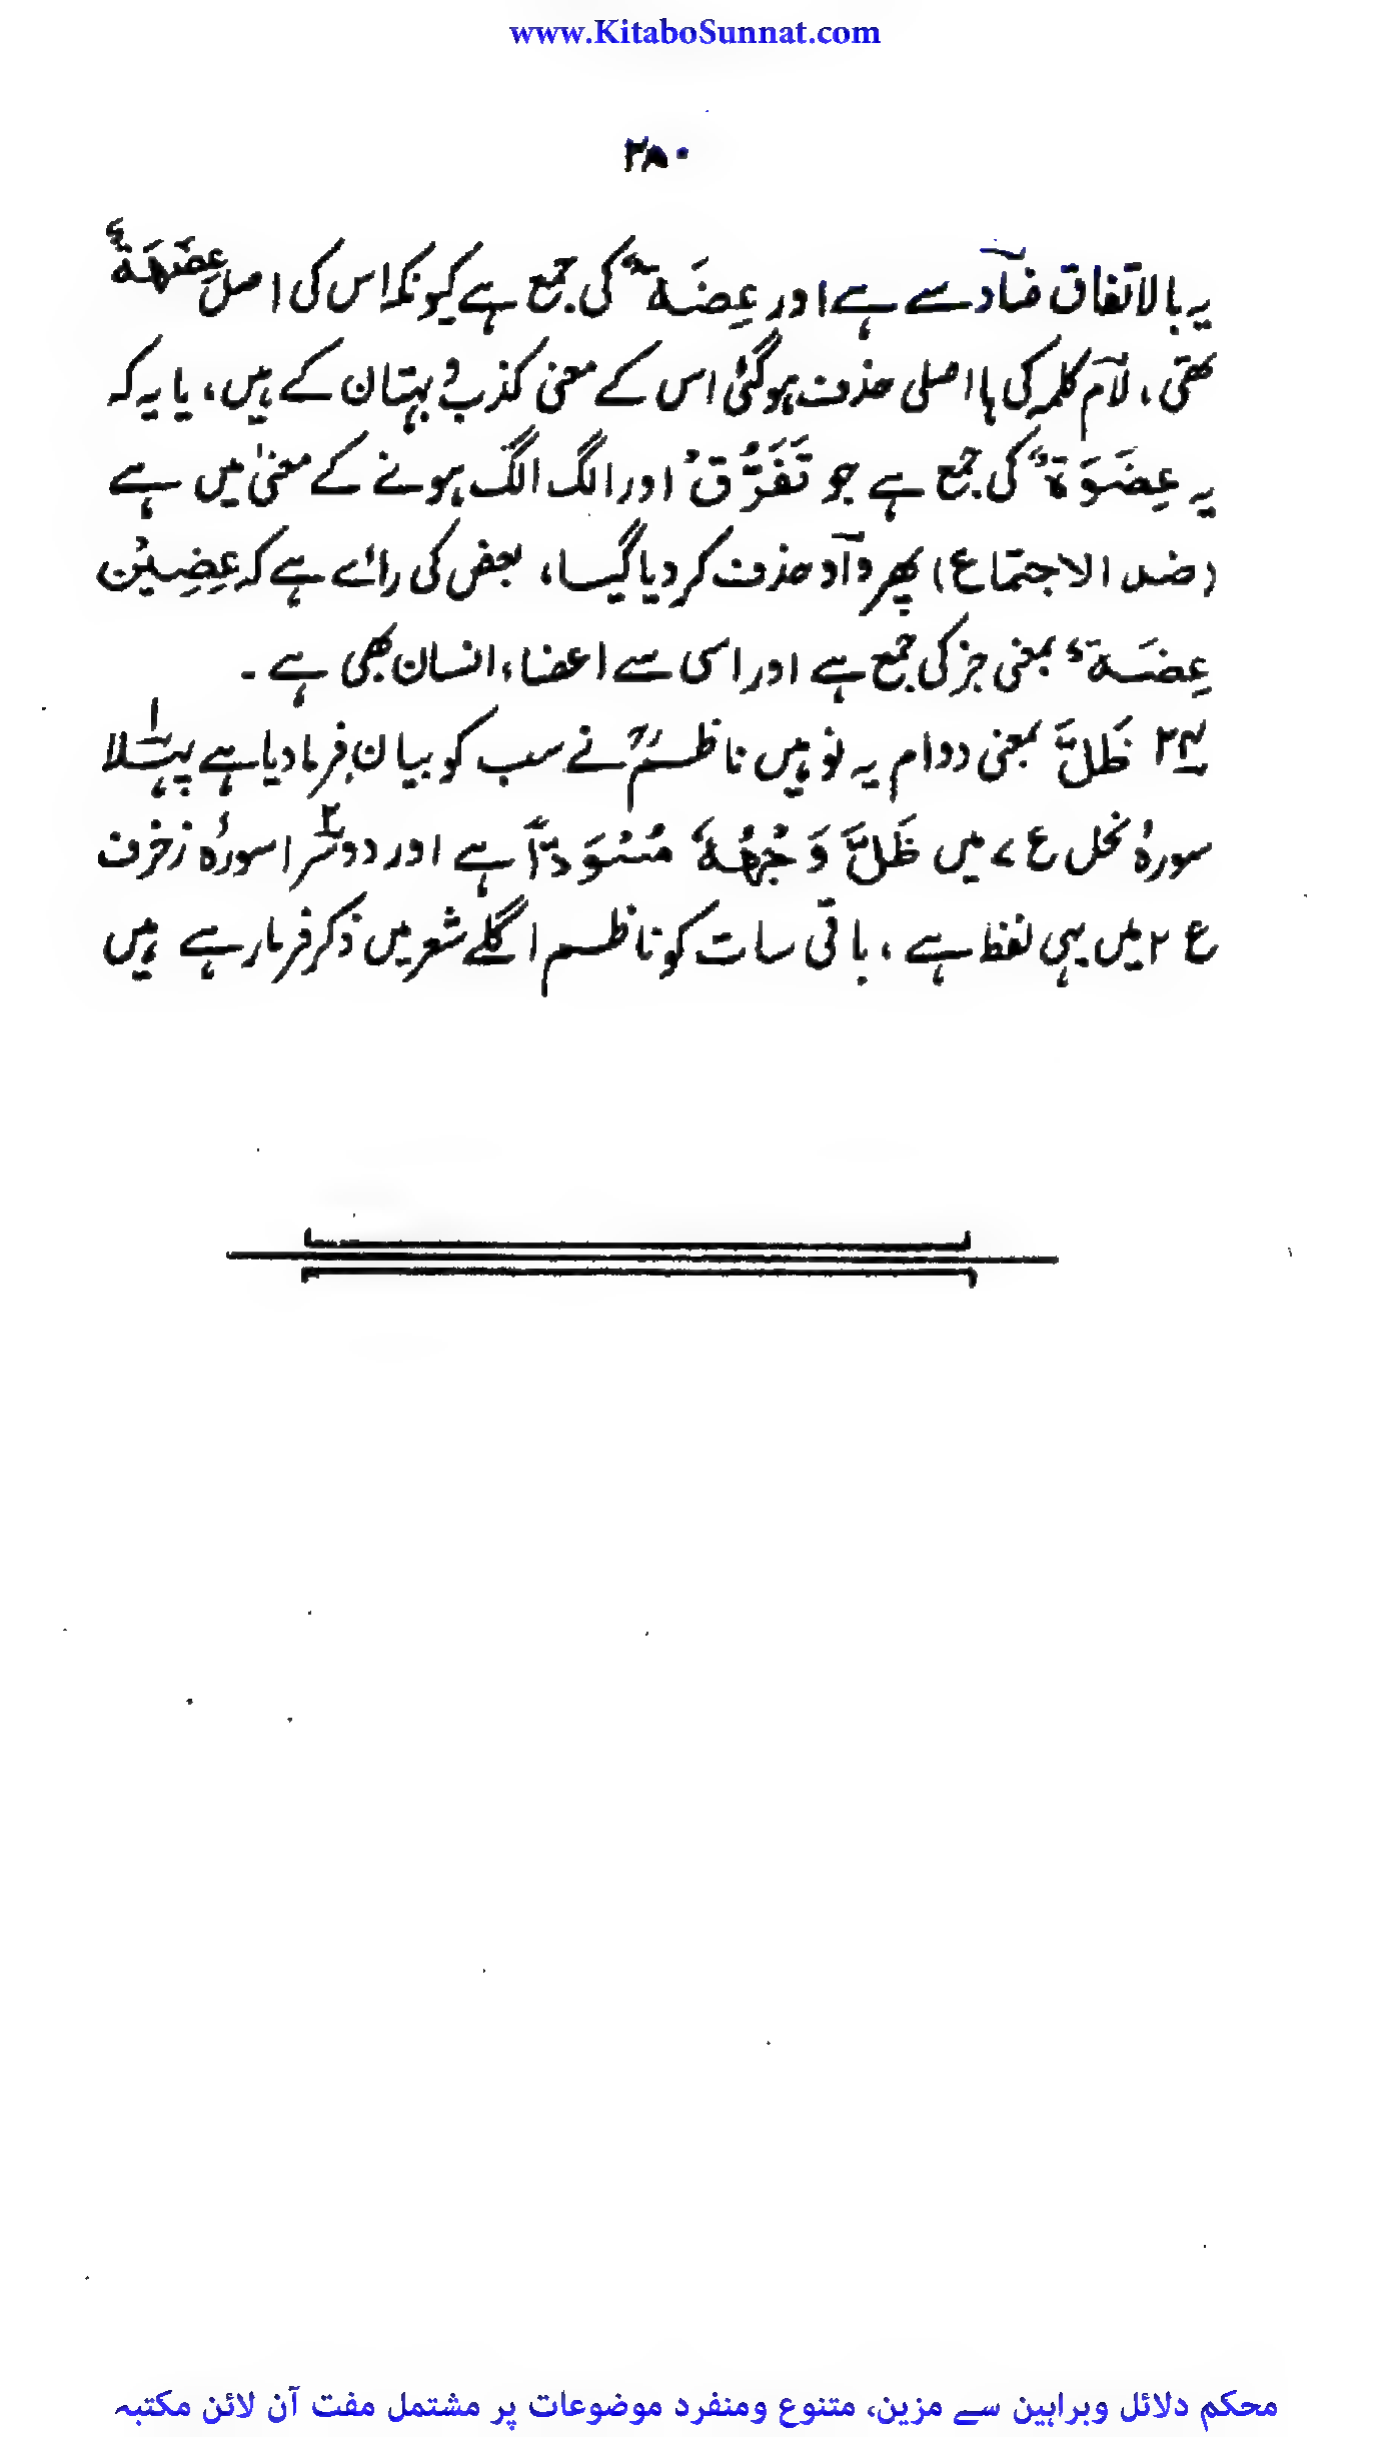 www.KitaboSunnat.com
۲۸۰
یہ بالاتفاق ضآد سے ہے اور عِضَۃٌ کی جمع ہے کیونکہ اس کی اصل عِضَہَۃٌ
تھی، لآم کلمہ کی ہا اصلی حذف ہوگئی اس کے معنی کذب و بہتان کے ہیں، یا یہ کہ
یہ عِضَوَۃٌ کی جمع ہے جو تَفَرُّقٌ اور الگ الگ ہونے کے معنیٰ میں ہے
(ضد الاجتماع) پھر وآو حذف کر دیا گیا، بعض کی رائے ہے کہ عِضِیْنَ
عِضَۃٌ بمعنی جز کی جمع ہے اور اسی سے اعضاء انسان بھی ہے۔
۲۴ ظَلَّ بمعنی دوام یہ نو ہیں ناظمؒ نے سب کو بیان فرما دیا ہے پہلا۱
سورۂ نحل ع ۷ میں ظَلَّ وَجْہُہٗ مُسْوَدًّا ہے اور دوسرا۲ سورۂ زخرف
ع ۲ میں یہی لفظ ہے، باقی سات کو ناظم اگلے شعر میں ذکر فرما رہے ہیں
محکم دلائل وبراہین سے مزین، متنوع ومنفرد موضوعات پر مشتمل مفت آن لائن مکتبہ